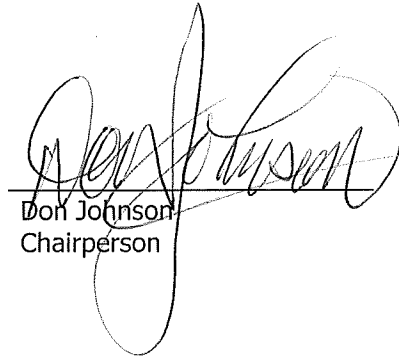 Don Johnson
Don Johnson
Chairperson